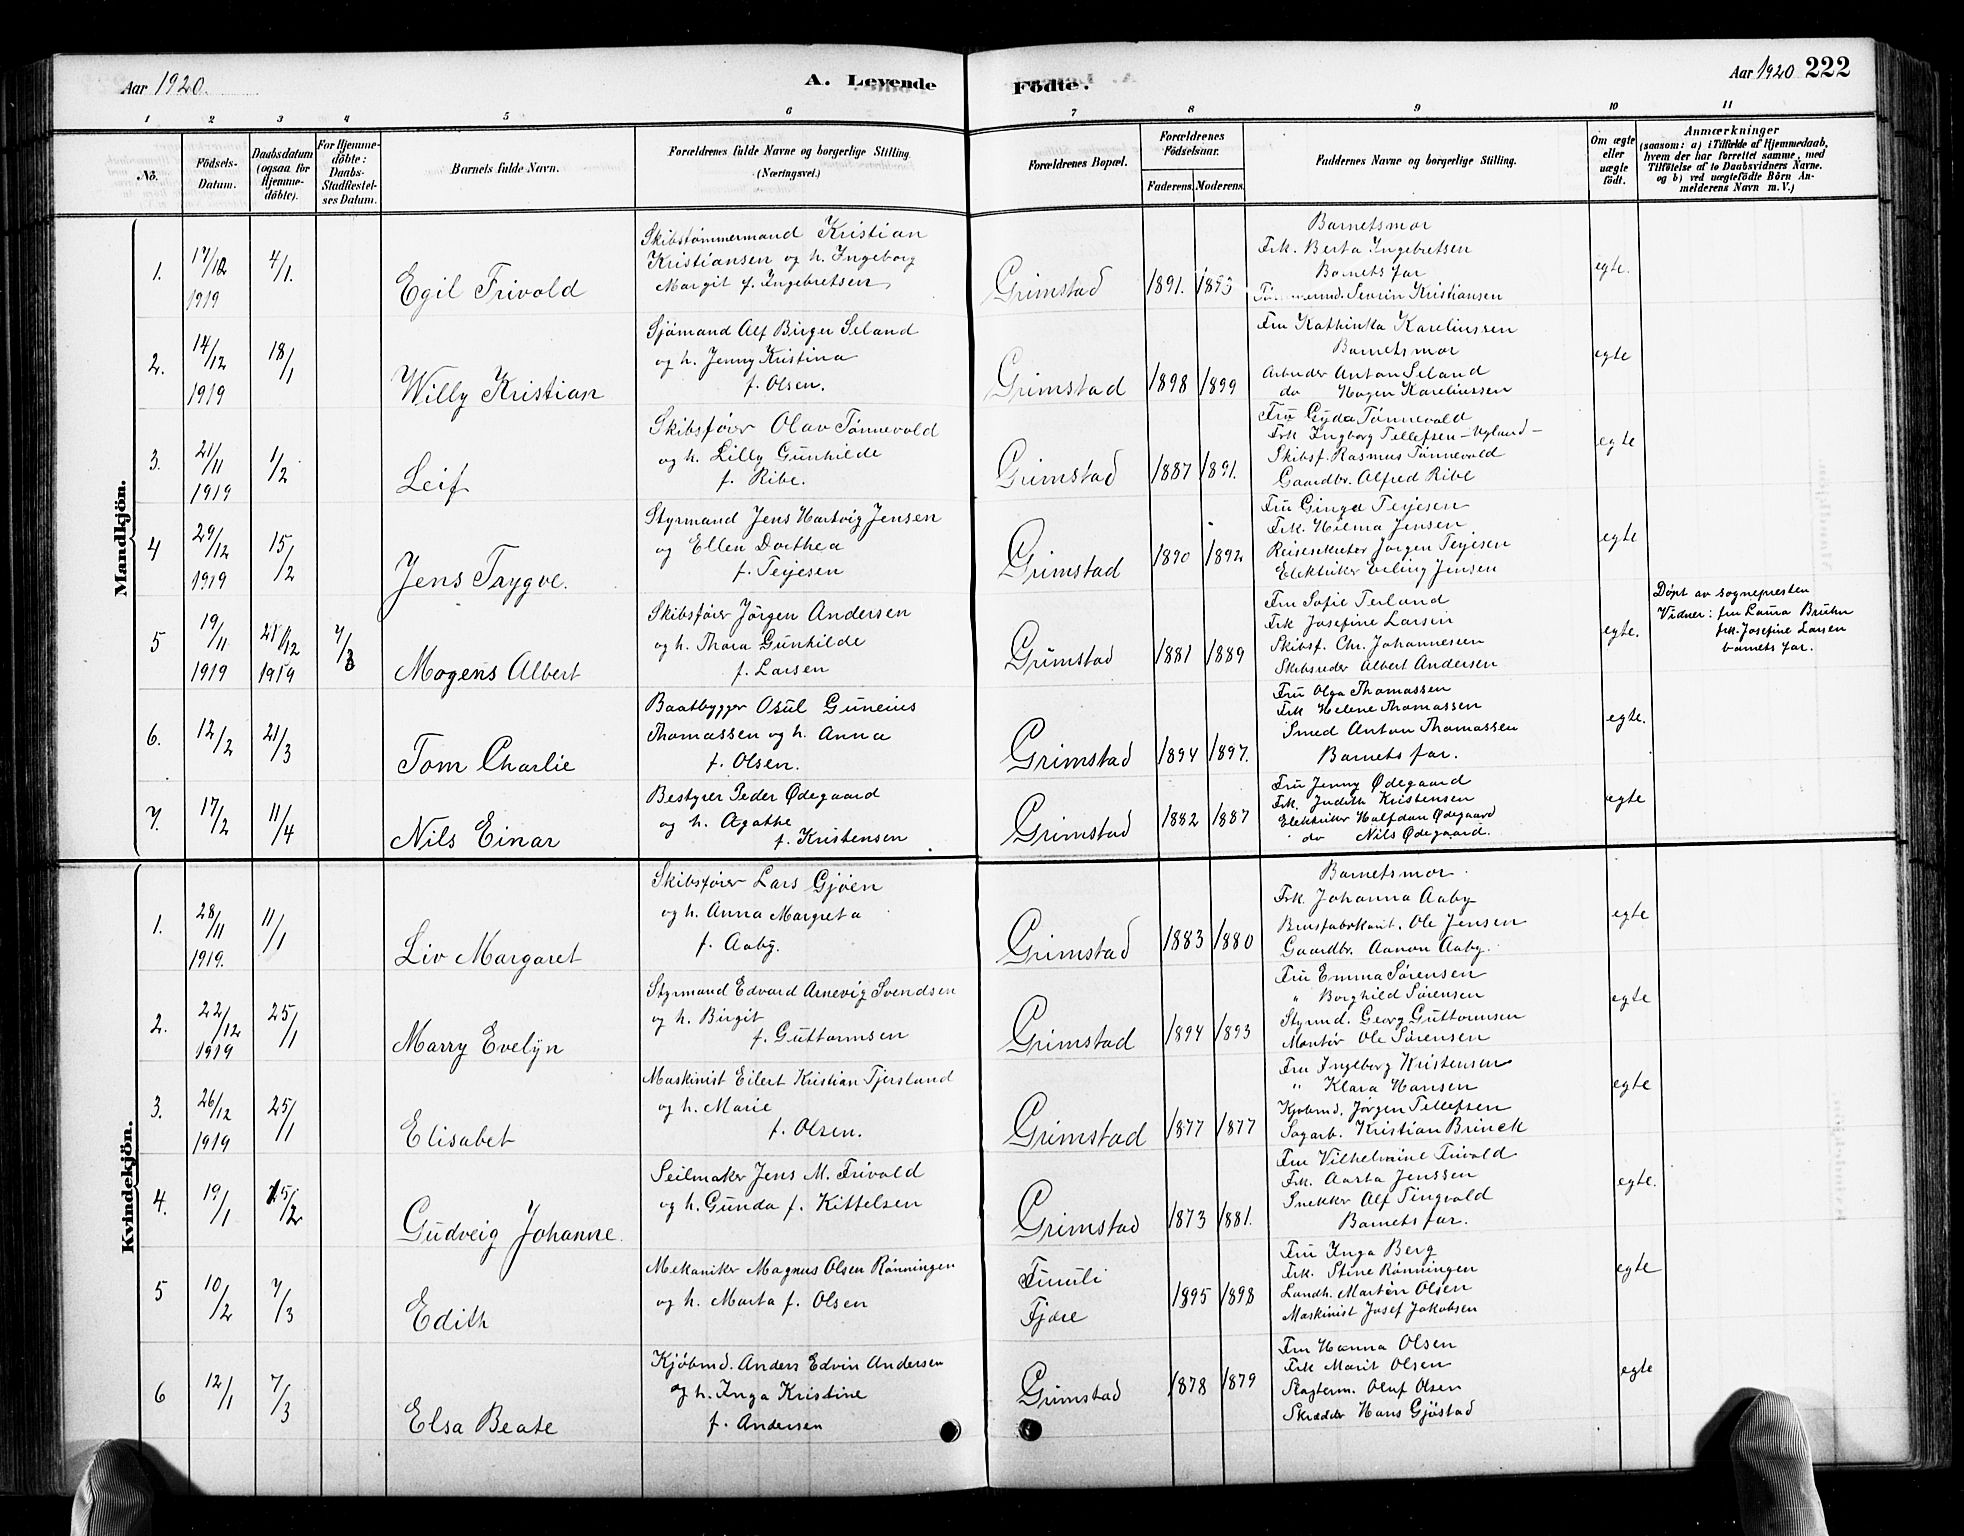 Aar 1920.
A. Levende
Födte.
Aar 1920 222
1 2 3 4 5 6 7 8 9 10 11
No.
Födsels-
Datum.
Daabsdatum
(ogsaa for
Hjemme-
döbte).
For Hjemme-
döbte:
Daabs-
Stadfæstel-
ses Datum.
Barnets fulde Navn.
Forældrenes fulde Navne og borgerlige Stilling.
(Næringsvei.)
Forældrenes Bopæl.
Forældrenes
Födselsaar.
Faderens. Moderens.
Faddernes Navne og borgerlige Stilling.
Om ægte
eller
uægte
födt.
Anmærkninger
(saasom: a) i Tilfælde af Hjemmedaab,
hvem der har forrettet samme, med
Tilföielse af to Daabsvidners Navne.
og b) ved uægtefödte Börn An-
melderens Navn m. V.)
Mandkjön.
1. 17/12 1919 4/1.
Egil Frivold
Skibstømmermand Kristian
Kristiansen og h. Ingeborg
Margit f. Ingebretsen
Grimstad 1891. 1893
Barnetsmor
Frk. Berta Ingebretsen
Barnets far
Sevrin Kristiansen
egte.
2. 14/12 1919 18/1
Willy Kristian
Sjømand Alf Birger Seland
og h. Jenny Kristina
f. Olsen.
Grimstad 1898 1899
Fru Kathinka Kareliussen
Barnetsmor
Arbeider Anton Seland
do Hagen Kareliussen
egte
3. 21/11 1919 1/2
Leif
Skibsfører Olav Tønnevold
og h. Lilly Gunhilde
f. Ribe.
Grimstad 1887 1891.
Fru Gyda Tønnevold
Frk Ingborg Tellefsen - Nyland -
Skibsf. Rasmus Tønnevold
Gaardbr. Alfred Ribe
egte
4 29/12 1919 15/2
Jens Trygve.
Styrmand Jens Hartvig Jensen
og Ellen Dorthea
f. Terjesen
Grimstad 1890 1892
Fru Ginga Terjesen
Frk. Hilma Jensen
Reisesekretær Jørgen Terjesen
Elektriker Erling Jensen
egte
5 19/11 1919 21/12 1919 7/3
Mogens Albert
Skibsfører Jørgen Andersen
og h. Thora Gunhilde
f. Larsen
Grimstad 1881 1889
Fru Sofie Terland
Frk Josefine Larsen
Skibsf. Chr. Johannesen
Skibsreder Albert Andersen
egte.
Døpt av sognepresten
Vidner: fru Laura Bruhn
frk. Josefine Larsen
barnets far.
6. 12/2 21/3
Tom Charlie
Baatbygger Osul Guneius
Thomassen og h. Anna
f. Olsen.
Grimstad 1894 1897.
Fru Olga Thomassen
Frk Helene Thomassen
Smed Anton Thomassen
Barnets far.
egte.
7. 17/2 11/4
Nils Einar
Bestyrer Peder Ødegaard
og h. Agathe
f. Kristensen
Grimstad 1882 1887
Fru Jenny Ødegaard
Frk. Judith Kristensen
Elektriker Halfdan Ødegaard
do Nils Ødegaard.
egte
Kvindekjön.
1. 28/11 1919. 11/1
Liv Margaret
Skibsfører Lars Gjøen
og h. Anna Margreta
f. Aaby.
Grimstad 1883 1880
Barnetsmor.
Frk. Johanna Aaby
Brusfabrikant. Ole Jensen
Gaardbr. Aanon Aaby.
egte
2. 22/12 1919 25/1
Marry Evelyn
Styrmand Edvard Arnevig Svendsen
og h. Birgit
f. Guttormsen
Grimstad 1894 1893
Fru Emma Sørensen
" Borghild Sørensen
Styrmd. Georg Guttormsen
Montør Ole Sørensen
egte
3. 26/12 1919 25/1
Elisabet
Maskinist Eilert Kristian Tjersland
og h. Marie
f. Olsen.
Grimstad 1877 1877
Fru Ingeborg Kristensen
" Klara Hansen
Kjøbmd. Jørgen Tellefsen
Sagarb. Kristian Brinck
egte
4. 19/1 15/2
Gudveig Johanne.
Seilmaker Jens M. Frivold
og h. Gunda f. Kittelsen
Grimstad 1873 1881.
Fru Vilhelmine Frivold
Frk. Aasta Jenssen
Snekker Alf Tingvold
Barnets far.
egte.
5 10/2 7/3
Edith
Mekaniker Magnus Olsen Rønningen
og h. Marta f. Olsen
Fjære 1895 1898
Fru Inga Berg
Frk. Stine Rønningen
Landh. Martin Olsen
Maskinist Josef Jakobsen
egte
6 12/1 7/3
Elsa Beate
Kjøbmd. Anders Edvin Andersen
og h. Inga Kristine
f. Andersen
Grimstad 1878 1879
Fru Hanna Olsen
Frk Marit Olsen
Slagterm. Oluf Olsen
Skrædder Hans Gjøstad
egte